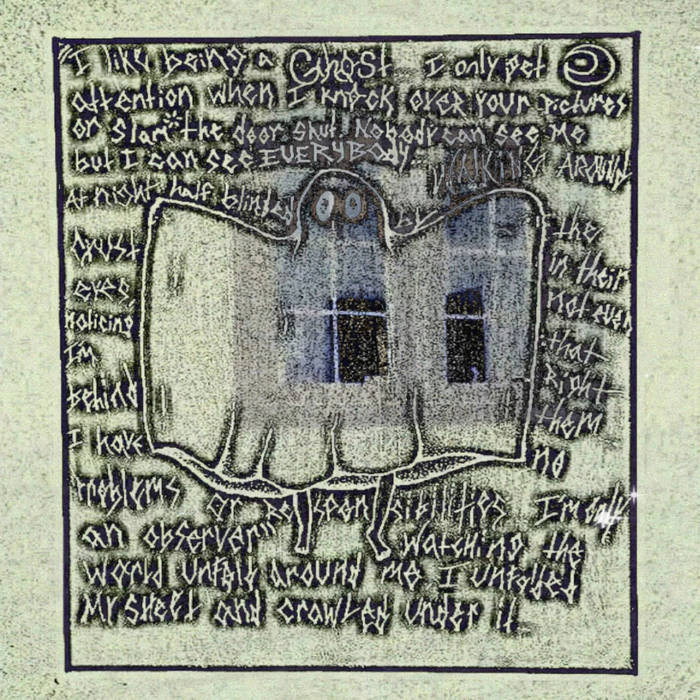 I like being a Ghost I only get
attention when I knock over your pictures
or slam the door shut. Nobody can see me
but I can see EVERYBODY. WALKING AROUND
At night half blinded the
Crust in their
eyes, not even
noticing that
Im Right
behind them
I have no
problems or responsibilities Im only
an observer" watching the
world unfold around me I unfolded
My sheet and crawled under it